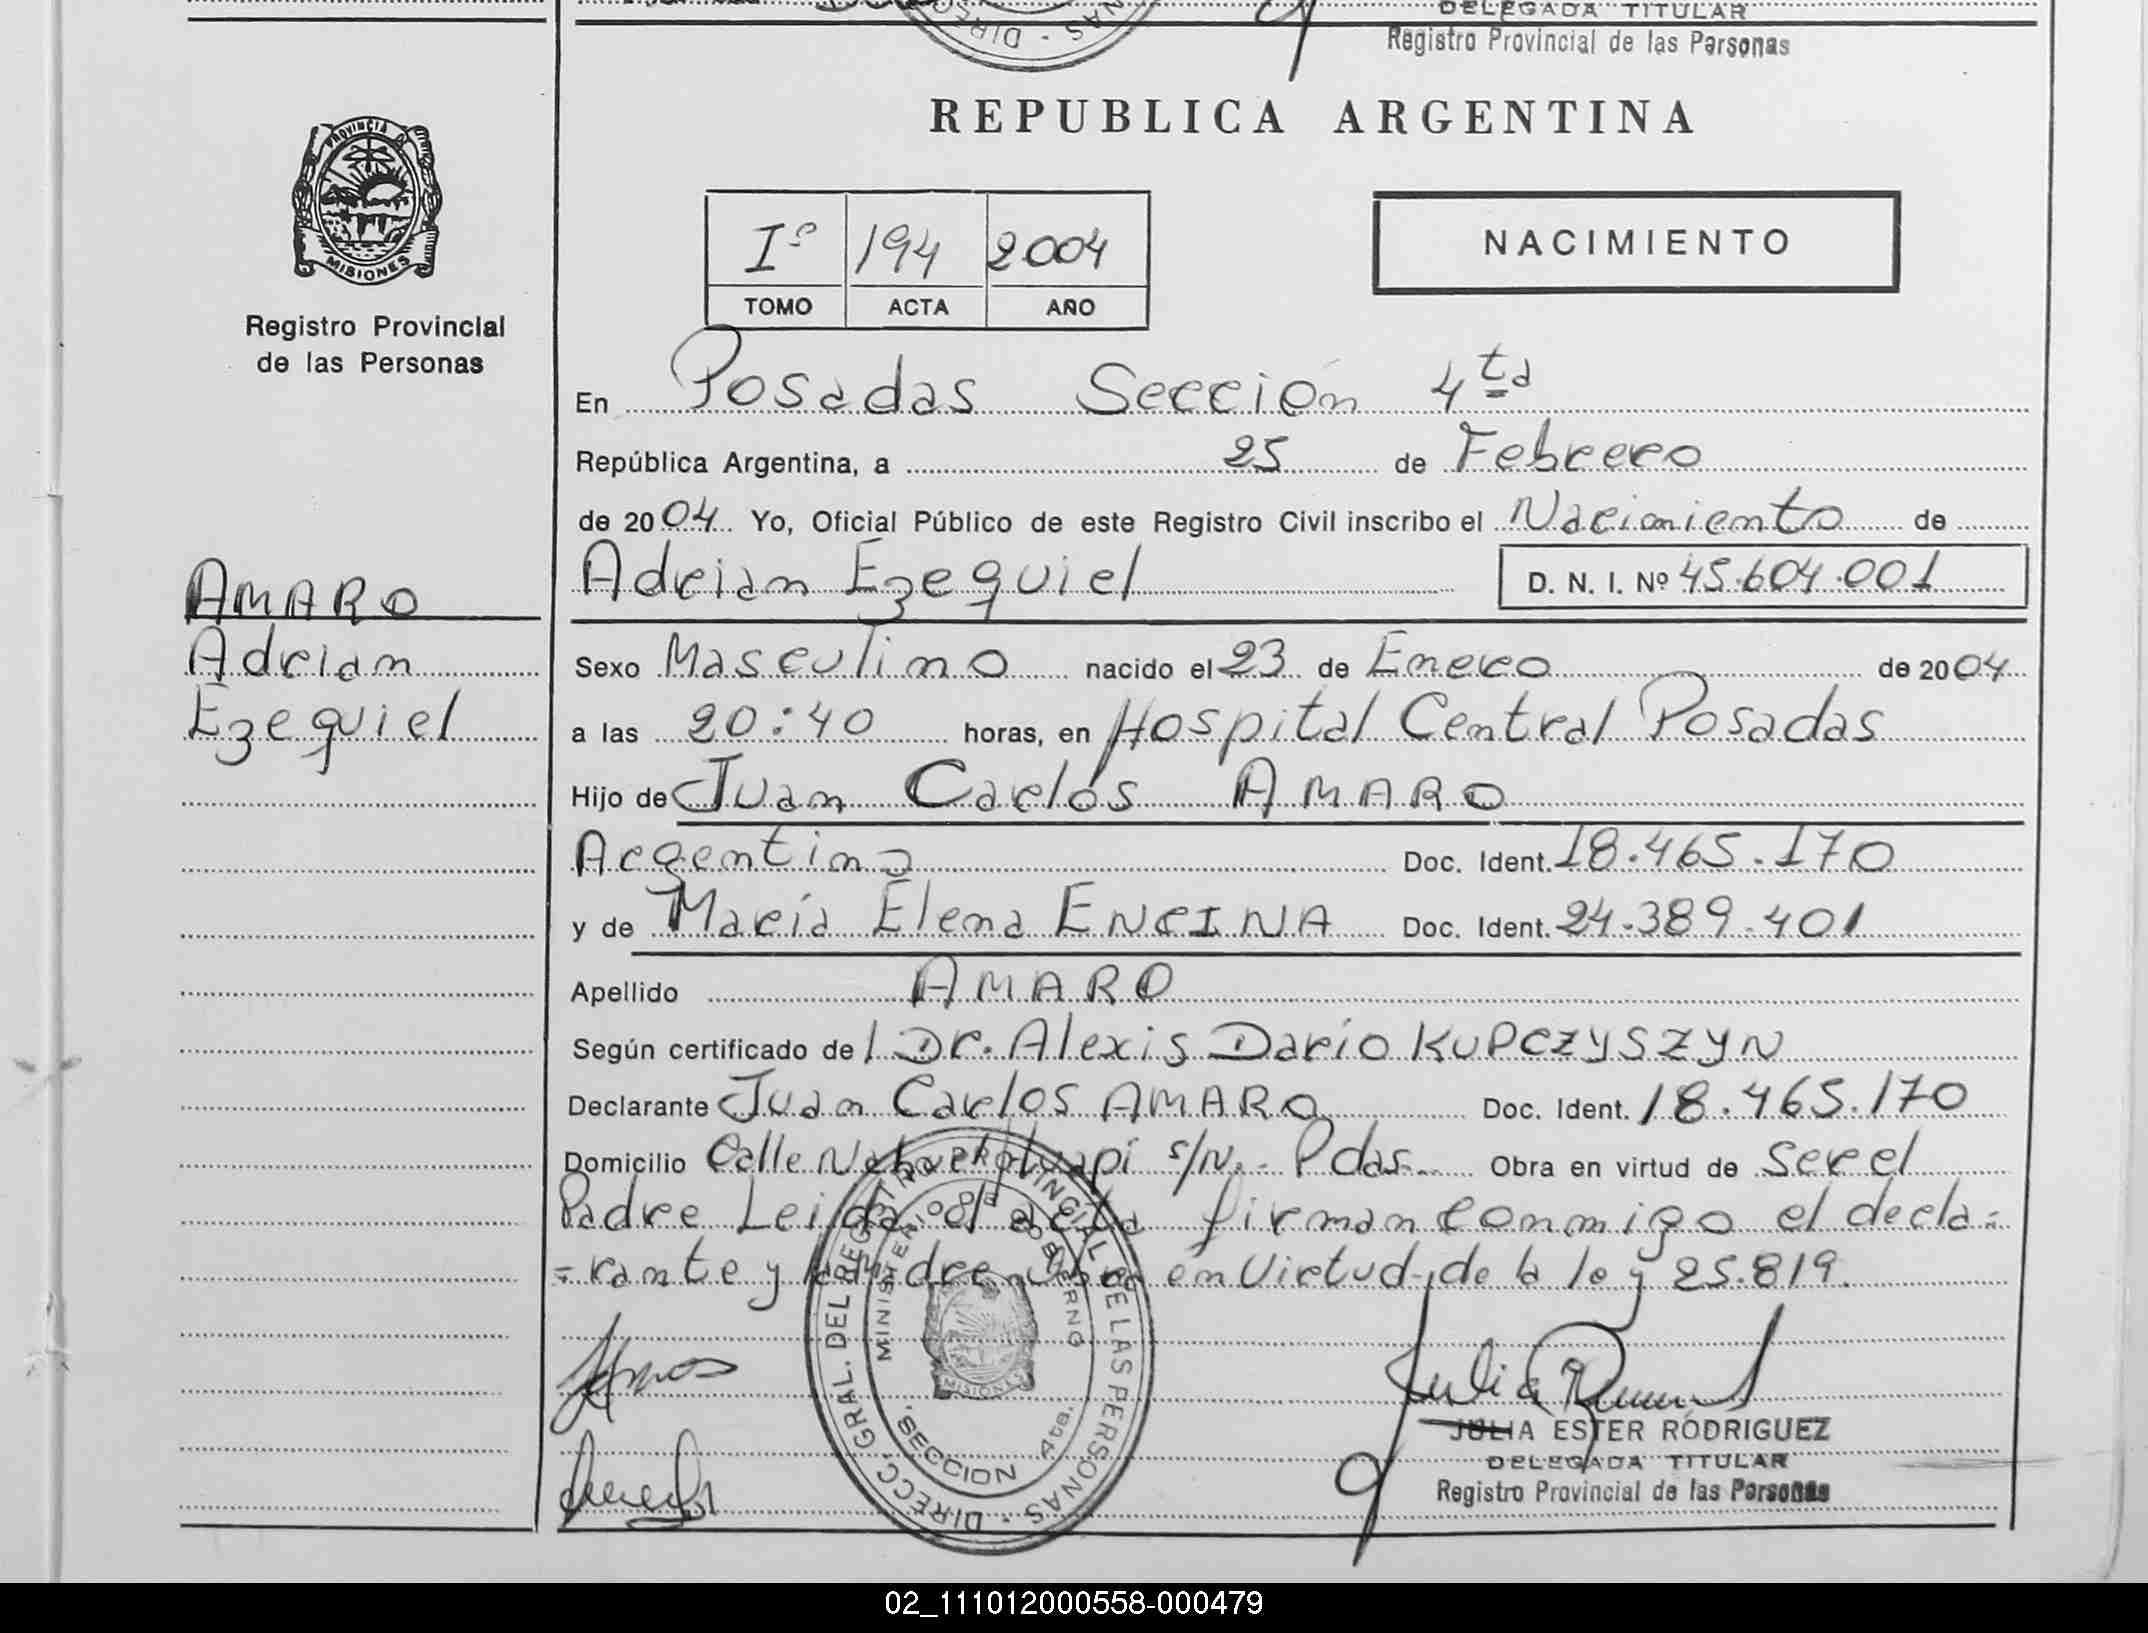 DELEGADA TITULAR
Registro Provincial de las Personas
DIREC
NAS - DIREC
REPUBLICA ARGENTINA
PROVINCIA D
MISIONES
Registro Provincial
de las Personas
Iº 194 2004
TOMO ACTA AÑO
NACIMIENTO
En Posadas Sección 4ta
República Argentina, a 25 de Febrero
de 2004 Yo, Oficial Público de este Registro Civil inscribo el Nacimiento de
Adrian Ezequiel D. N. I. Nº 45.604.001
AMARO
Adrian
Ezequiel
Sexo Masculino nacido el 23 de Enero de 2004
a las 20:40 horas, en Hospital Central Posadas
Hijo de Juan Carlos AMARO
Argentino Doc. Ident. 18.465.170
y de María Elena ENCINA Doc. Ident. 24.389.401
Apellido AMARO
Según certificado de l Dr. Alexis Darío KUPCZYSZYN
Declarante Juan Carlos AMARO Doc. Ident. 18.465.170
Domicilio Calle Nahuel Huapi s/N.- Pdas. Obra en virtud de Ser el
Padre Leida el acta firman conmigo el decla=
=rante y la madre Obra en Virtud de la ley 25.819.
DIRECC. GRAL. DEL REGISTRO PROVINCIAL DE LAS PERSONAS
MINISTERIO DE GOBIERNO
MISIONES
SECCION 4ta.
Julia R
JULIA ESTER RODRIGUEZ
DELEGADA TITULAR
Registro Provincial de las Personas
02_111012000558-000479